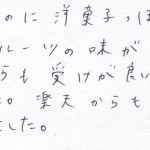 のに洋菓子っぽ
ルーツの味が
らも受けが良い
。楽天からも
した。